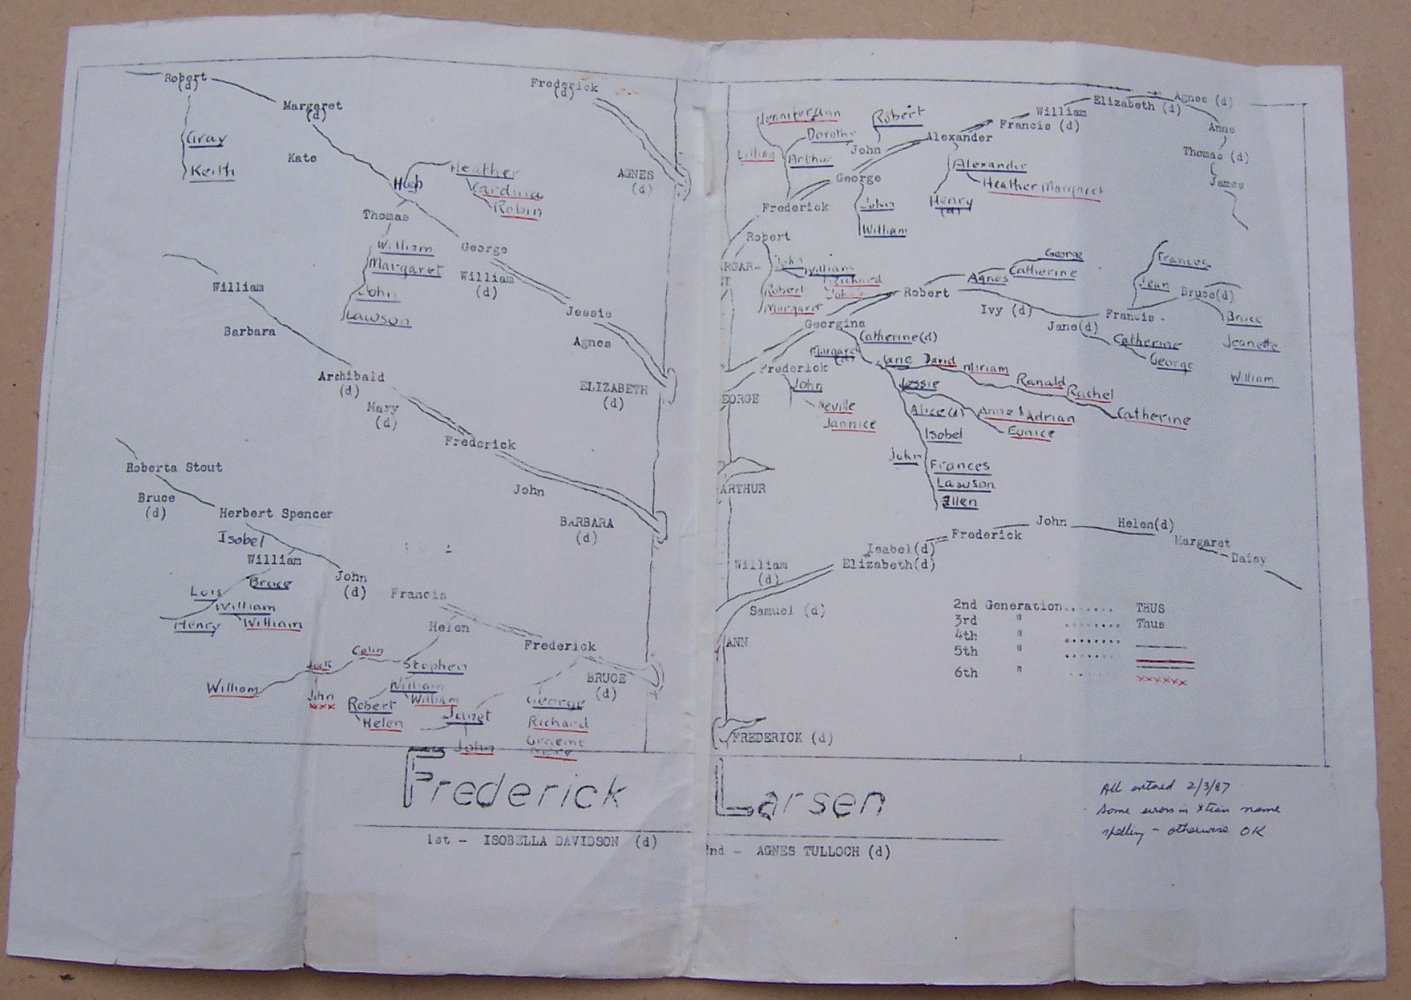 Robert
(d)
Margaret
(d)
Kate
Gray
Keith
Hugh
Heather
Robin
Thomas
William
Margaret
John
Lawson
George
William
(d)
Jessie
Agnes
Frederick
(d)
AGNES
(d)
ELIZABETH
(d)
William
Barbara
Archibald
(d)
Mary
(d)
Frederick
John
BARBARA
(d)
Roberta Stout
Bruce
(d)
Herbert Spencer
Isobel
William
Bruce
Lois
William
Henry
William
John
(d)
Francis
Helen
Frederick
BRUCE
(d)
Colin
Stephen
William
John
xxx
William
William
Robert
Helen
Janet
John
George
Richard
Graeme
JenniferAnn
Lillian
Dorothy
Arthur
Robert
John
Alexander
Francis (d)
William
Elizabeth (d)
Agnes (d)
Anne
Thomas (d)
James
George
Frederick
John
William
Alexander
Heather Margaret
Henry
(d)
Robert
John
William
Richard
John
Robert
Margaret
Georgina
Robert
Agnes
Catherine
George
Ivy (d)
Jane(d)
Francis
Frances
Jean
Bruce(d)
Bruce
Jeanette
William
Catherine
George
Catherine(d)
Margaret
Frederick
John
Neville
Jannice
Jane
David
Miriam
Ranald
Rachel
Catherine
Jessie
Alice(d)
Anne &
Adrian
Eunice
Isobel
John
Frances
Lawson
Ellen
EORGE
ARTHUR
William
(d)
Samuel (d)
Isabel(d)
Elizabeth(d)
Frederick
John
Helen(d)
Margaret
Daisy
ANN
FREDERICK (d)
2nd Generation...... THUS
3rd " ...... Thus
4th " ......
5th " ......
6th " xxxxxx
Frederick Larsen
1st - ISOBELLA DAVIDSON (d)
2nd - AGNES TULLOCH (d)
All entered 2/3/87
Some errors in Xtian name
spelling - otherwise OK